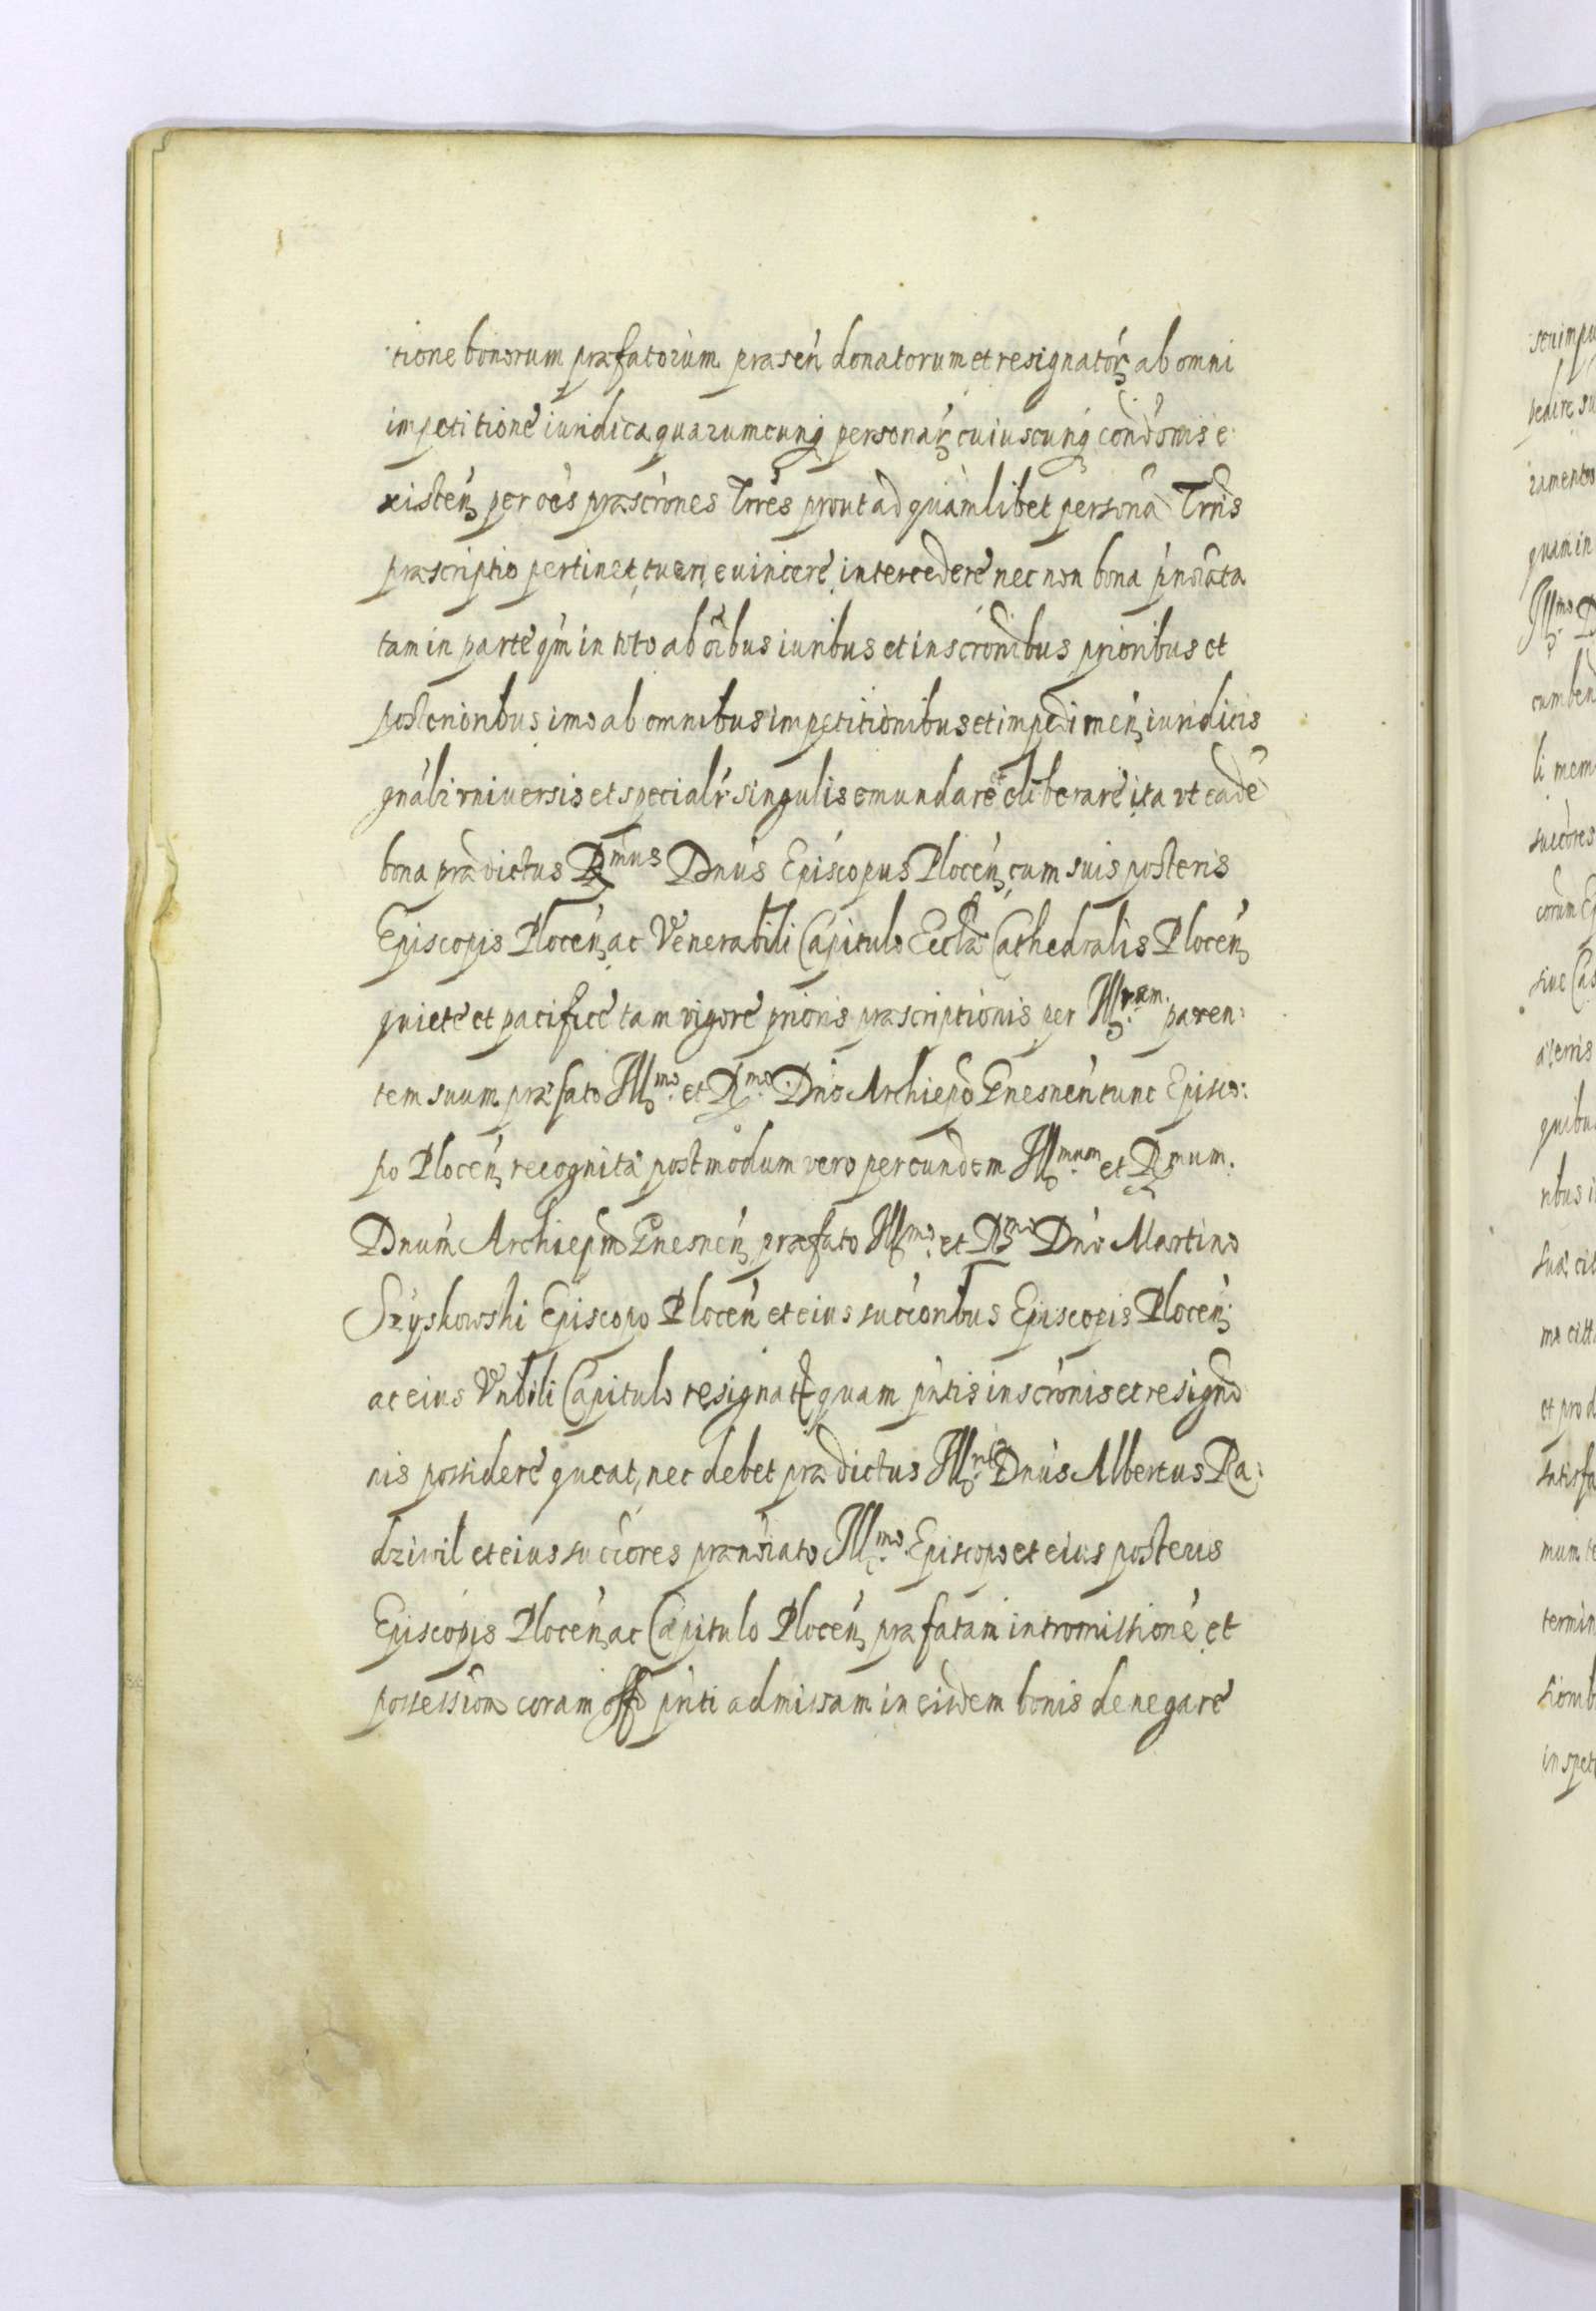 tione bonorum præfatorum præsen donatorum et resignator ab omni
impetitione iuridica quarumcunq personar cuiuscunq condonis e:
xisten per oes præscrones Trres prout ad quamlibet persona Trris
præscriptio pertinet, tueri, evincere, intercedere nec non bona pnoiata
tam in parte qm in toto ab oibus iuribus et inscronibus prioribus et
posterioribus imo ab omnibus impetitionibus et impedimen iuridicis
gnalr vniversis et specialr singulis emundare et eliberare ita vt eade
bona prædictus Rmus Dnus Episcopus Plocen cum suis posteris
Episcopis Plocen ac Venerabili Capitulo Eccla Cathedralis Plocen
quiete et pacifice tam vigore prioris præscriptionis per Illrem paren:
tem suum præfato Illmo et Rmo Dno Archiepo Gnesnen tunc Episco:
po Plocen recognita postmodum vero per eundem Illmum et Rmum
Dnum Archiepm Gnesnen præfato Illmo et Rmo Dno Martino
Szyskowski Episcopo Plocen et eius succoribus Episcopis Plocen
ac eius Vnbili Capitulo resignat quam pntis inscronis et resigno
nis possidere queat, nec debet prædictus Illris Dnus Albertus Ra:
dziwil et eius succores prænoiato Illmo Episcopo et eius posteris
Episcopis Plocen ac Capitulo Plocen præfatam intromissione et
possessiom coram offo pnti admissam in eisdem bonis denegare